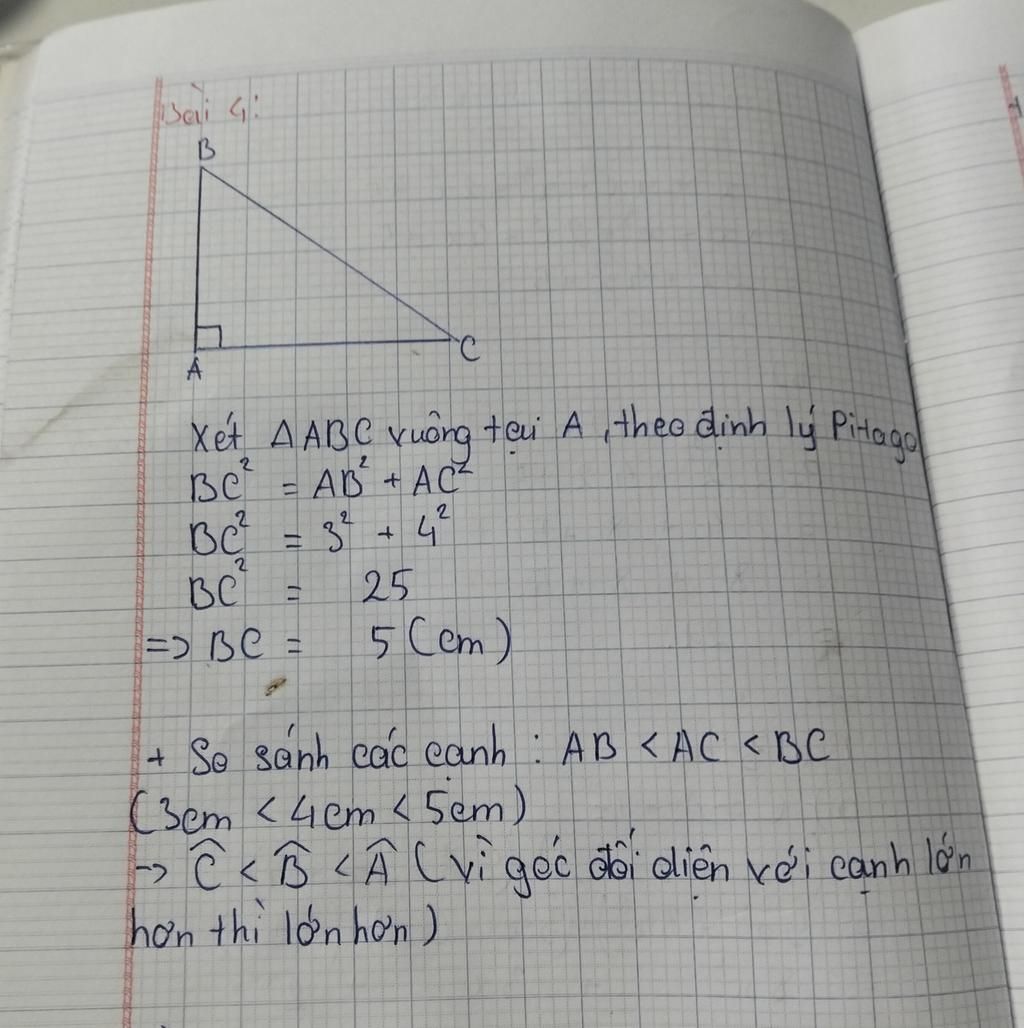 Bài 4:
B
A
C
Xét ΔABC vuông tại A, theo định lý Pitago
BC² = AB² + AC²
BC² = 3² + 4²
BC² = 25
=> BC = 5 (cm)
+ So sánh các cạnh : AB < AC < BC
(3cm < 4cm < 5cm)
→ Ĉ < B̂ < Â (vì góc đối diện với cạnh lớn
hơn thì lớn hơn)